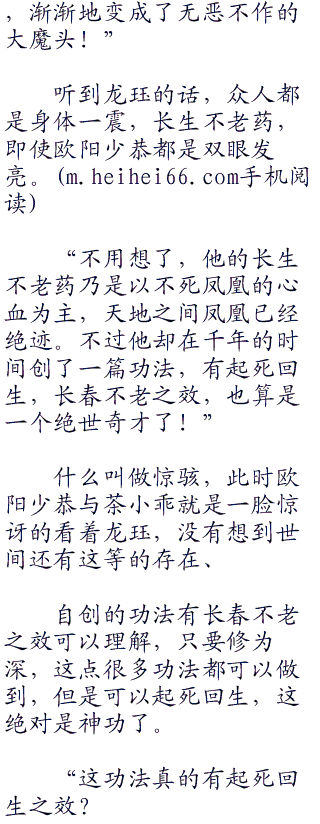 ，渐渐地变成了无恶不作的
大魔头！”
听到龙珏的话，众人都
是身体一震，长生不老药，
即使欧阳少恭都是双眼发
亮。(m.heihei66.com手机阅
读)
“不用想了，他的长生
不老药乃是以不死凤凰的心
血为主，天地之间凤凰已经
绝迹。不过他却在千年的时
间创了一篇功法，有起死回
生，长春不老之效，也算是
一个绝世奇才了！”
什么叫做惊骇，此时欧
阳少恭与茶小乖就是一脸惊
讶的看着龙珏，没有想到世
间还有这等的存在、
自创的功法有长春不老
之效可以理解，只要修为
深，这点很多功法都可以做
到，但是可以起死回生，这
绝对是神功了。
“这功法真的有起死回
生之效？